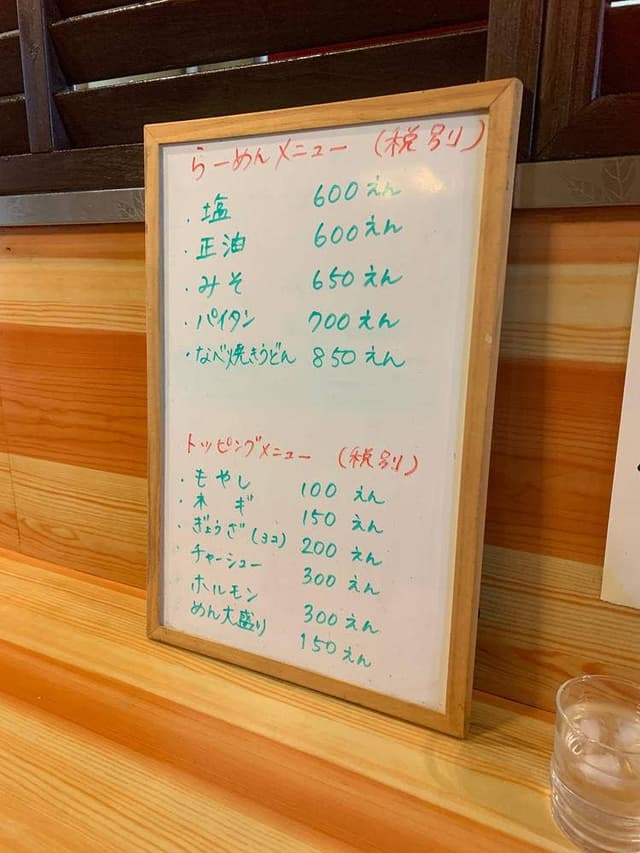 らーめんメニュー (税別)
・塩 600えん
・正油 600えん
・みそ 650えん
・パイタン 700えん
・なべ焼きうどん 850えん
トッピングメニュー (税別)
・もやし 100えん
・ネギ 150えん
・ぎょうざ(3コ) 200えん
・チャーシュー 300えん
ホルモン 300えん
めん大盛り 150えん